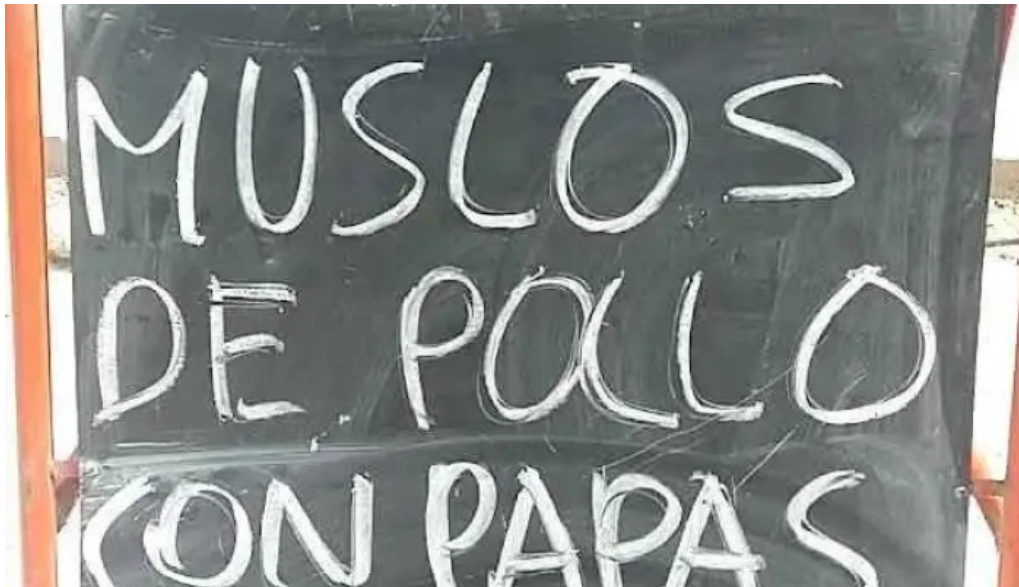 MUSLOS
DE POLLO
CON PAPAS